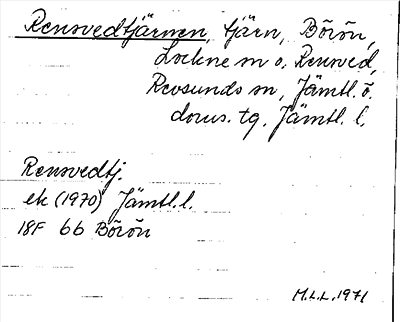 Rensvedtjärnen, tjärn, Börön,
Lockne sn o. Rensved,
Revsunds sn, Jämtl. ö.
doms. tg. Jämtl. l.
Rensvedtj.
ek (1970) Jämtl. l.
18F 6b Börön
M.L.L. 1971